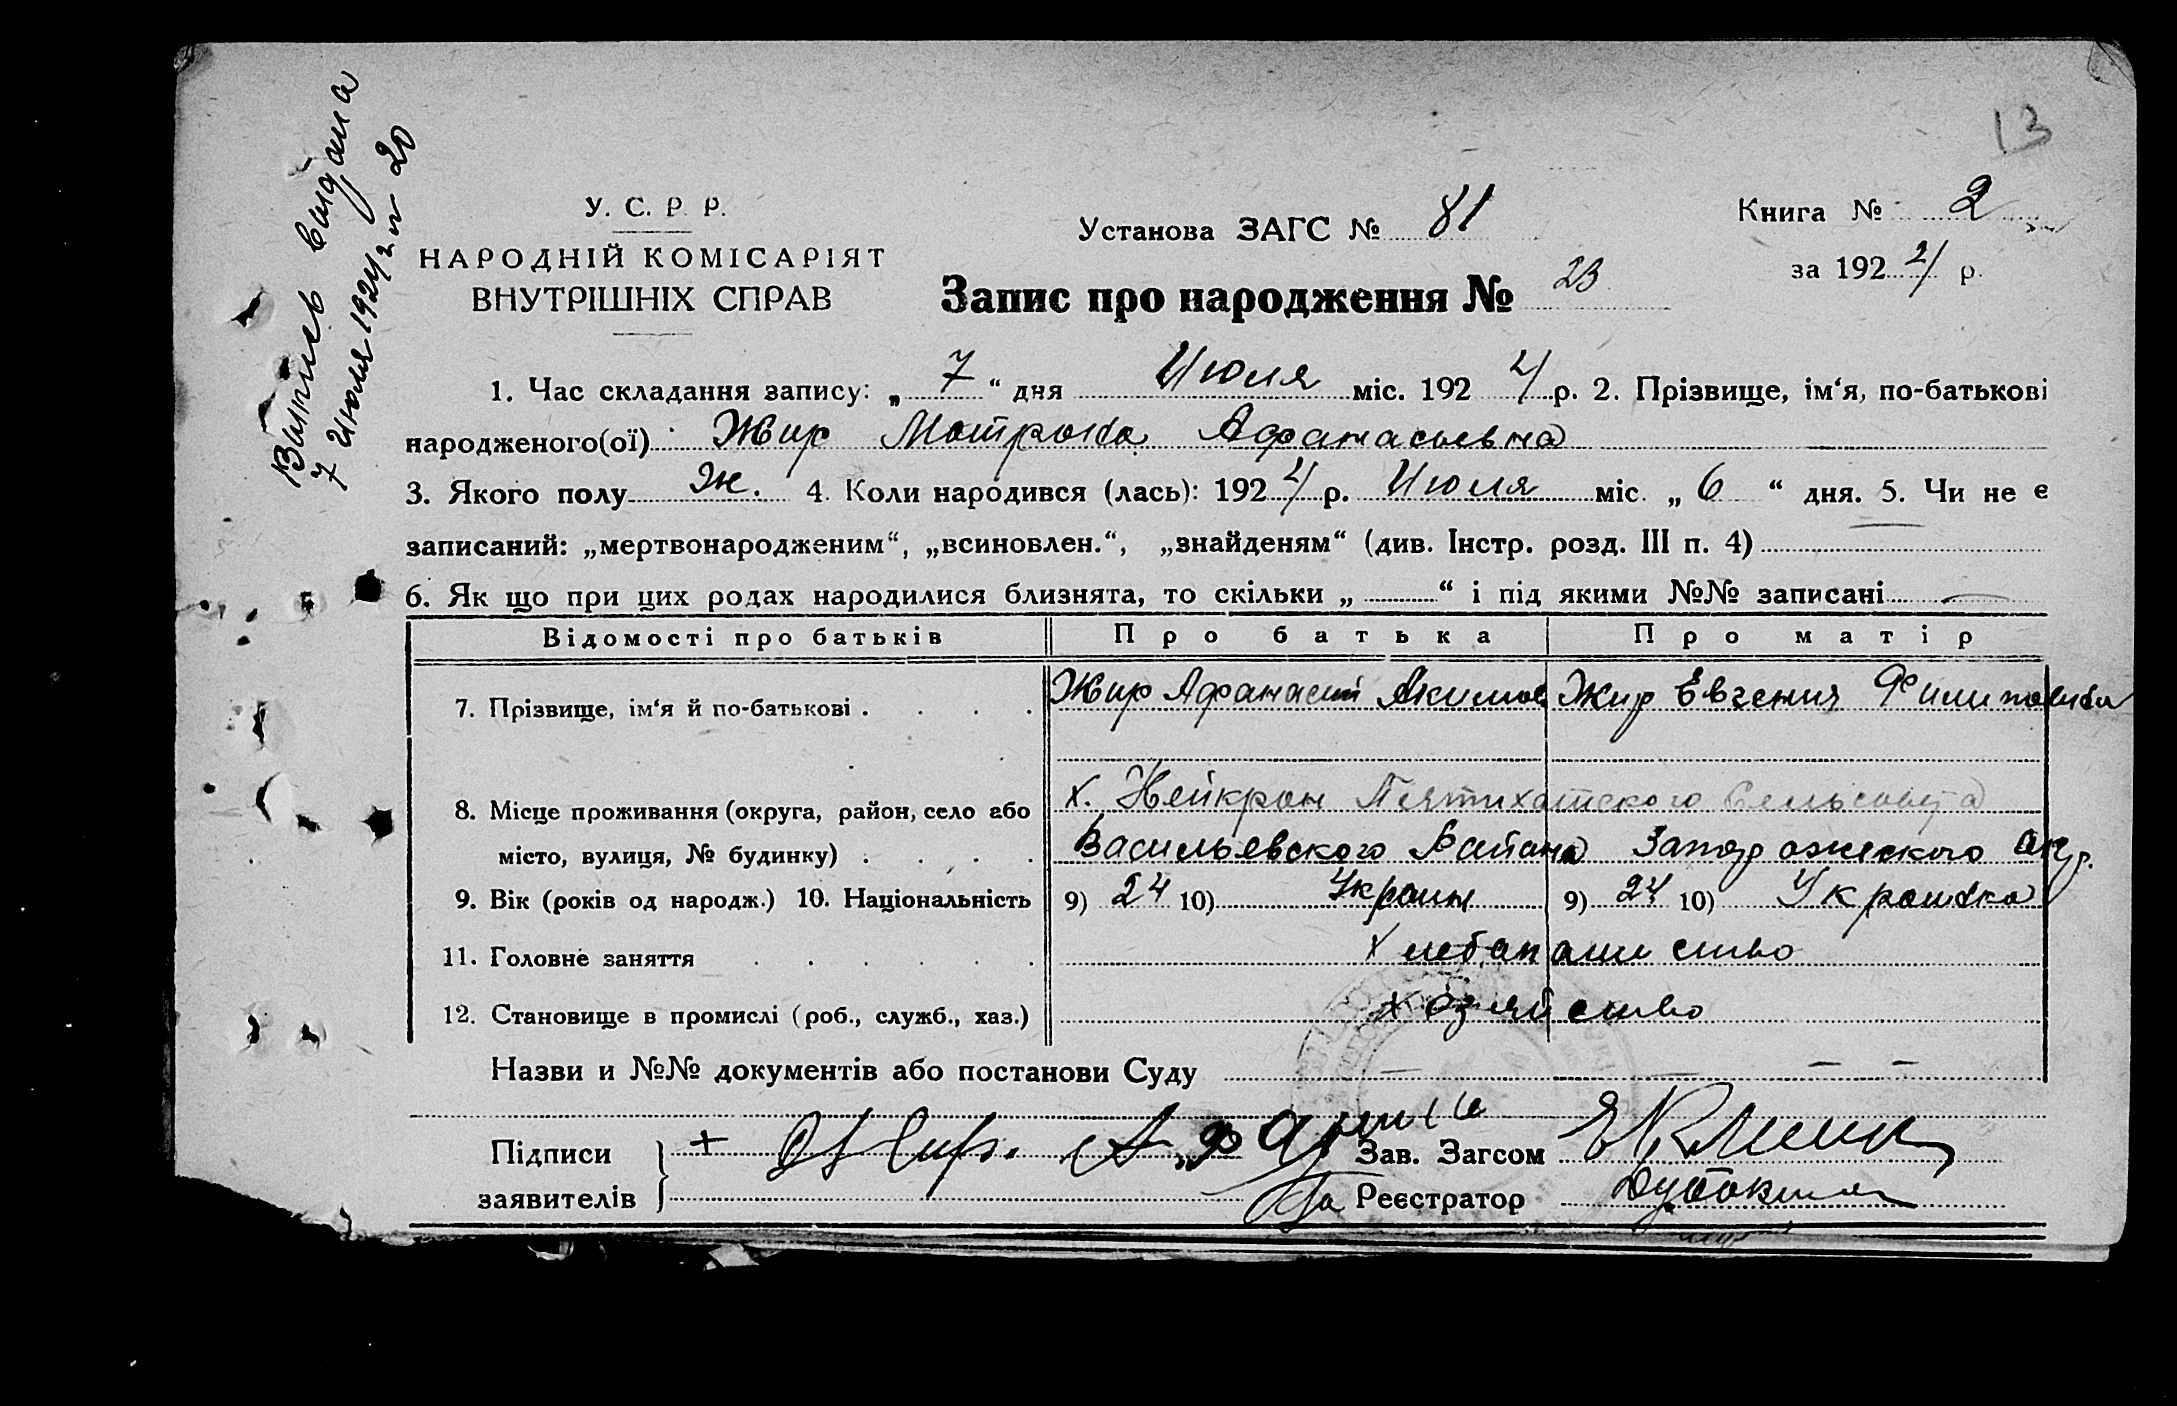 13
Выпись выдана
7 Июля 1924 г. № 20
У. С. Р. Р.
НАРОДНІЙ КОМІСАРІЯТ
ВНУТРІШНІХ СПРАВ
Установа ЗАГС № 81
Книга № 2
за 1924 р.
Запис про народження № 23
1. Час складання запису: „7“ дня Июля міс. 1924 р. 2. Прізвище, ім‘я, по-батькові
народженого(ої) Жир Матрона Афанасьевна
3. Якого полу ж. 4. Коли народився (лась): 1924 р. Июля міс. „6“ дня. 5. Чи не є
записаний: „мертвонародженим“, „всиновлен.“, „знайденям“ (див. Інстр. розд. III п. 4)
6. Як що при цих родах народилися близнята, то скільки „ “ і під якими №№ записані —
Відомості про батьків Про батька Про матір
7. Прізвище, ім‘я й по-батькові . . . . Жир Афанасий Акимов Жир Евгения Филиповна
х. Нейкрон Пятихатского Сельсовета
8. Місце проживання (округа, район, село або
місто, вулиця, № будинку) . . . . Васильевского Района Запорожского окр.
9. Вік (років од народж.) 10. Національність 9) 24 10) Украин 9) 24 10) Украинка
11. Головне заняття . . . . . . Хлебопашество
12. Становище в промислі (роб., служб., хаз.) хозяйство
Назви и №№ документів або постанови Суду — — — —
Підписи заявителів + Жир. Афанасий
Зав. Загсом
За Реєстратор